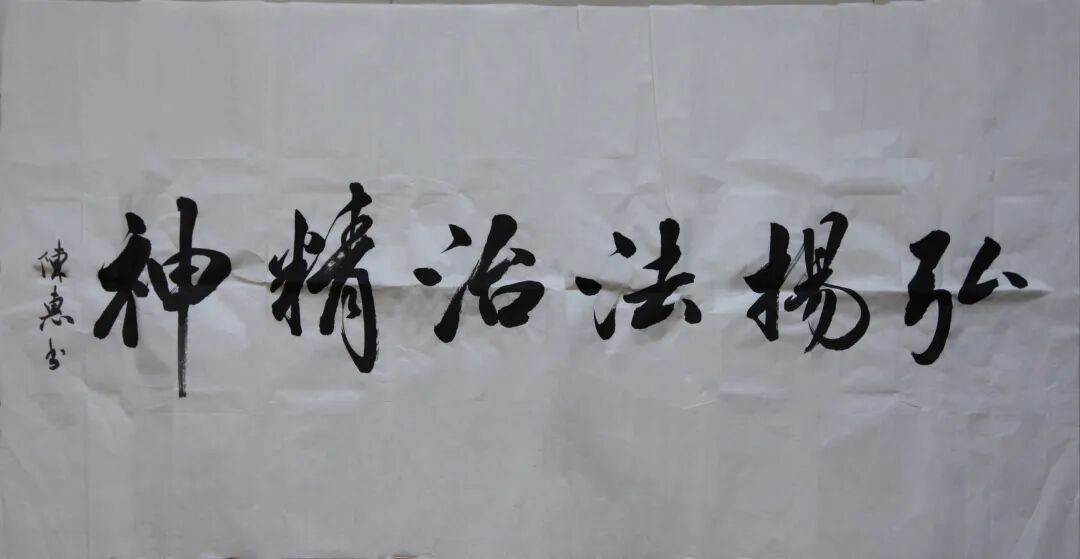 弘揚法治精神
陳惠书